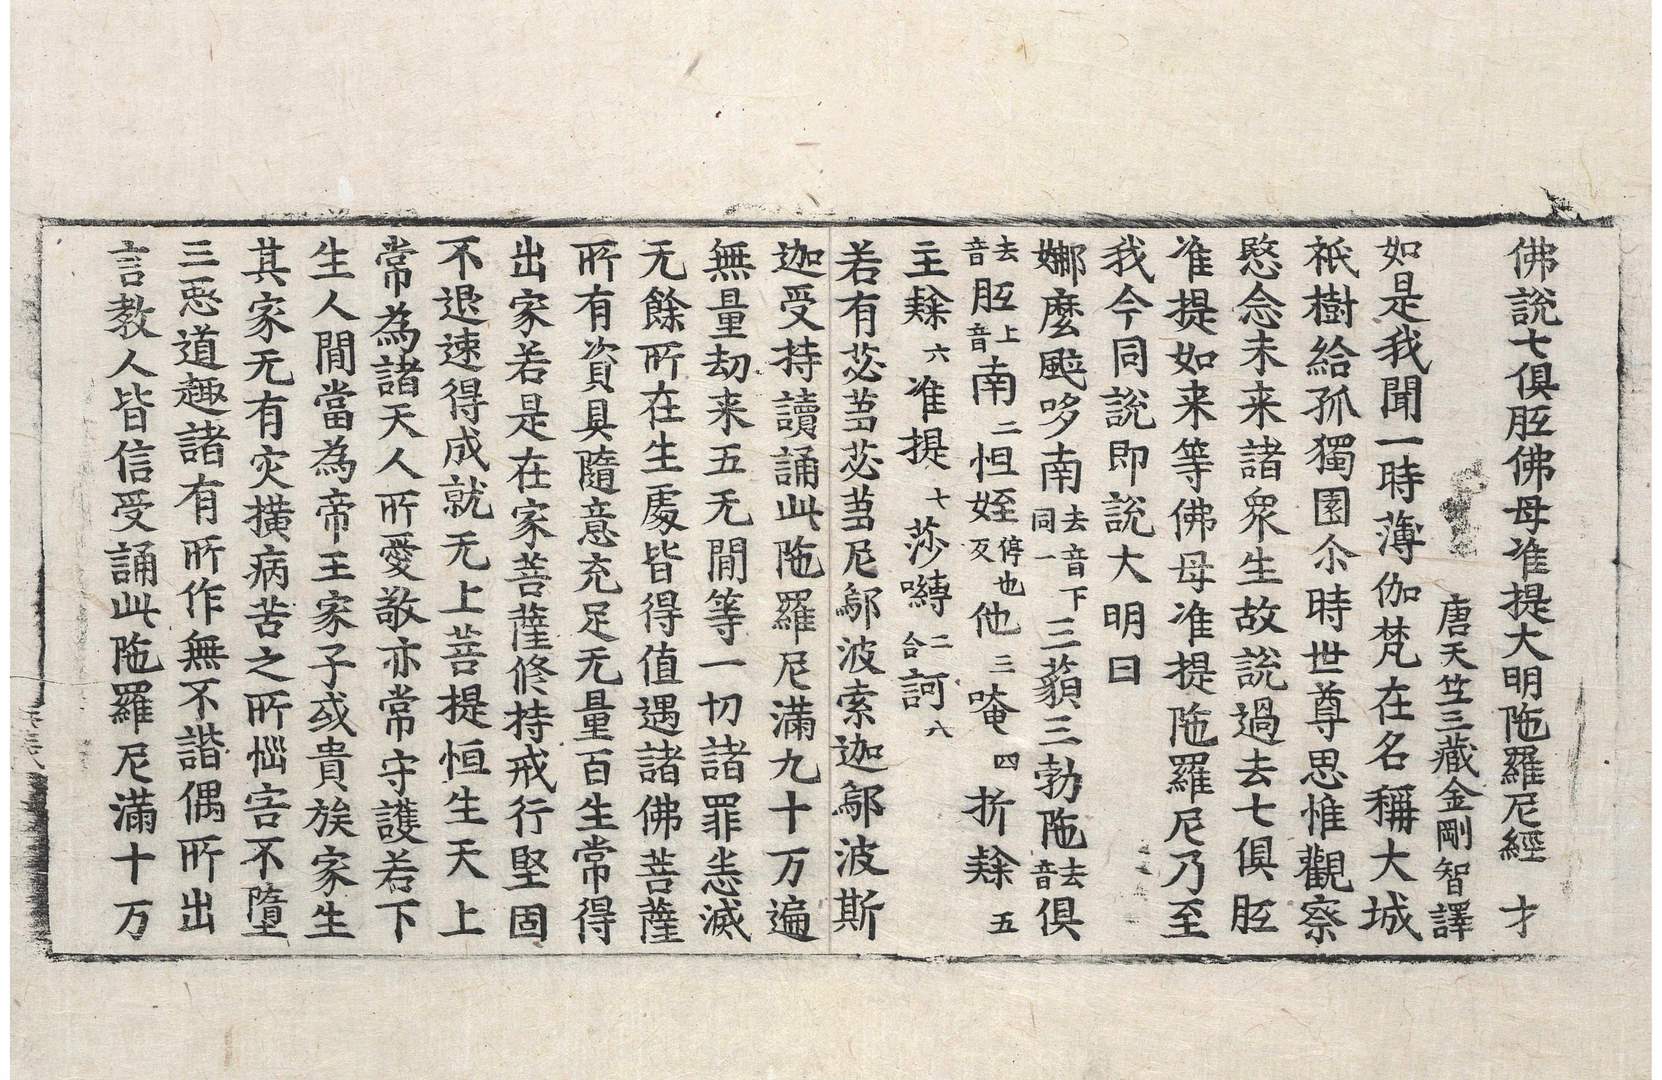 佛說七俱胝佛母准提大明陁羅尼經 才
唐天竺三藏金剛智譯
如是我聞一時薄伽梵在名稱大城
祇樹給孤獨園尒時世尊思惟觀察
愍念未来諸衆生故說過去七俱胝
准提如来等佛母准提陁羅尼乃至
我今同說即說大明曰
娜麼颯哆南去音下同一三藐三勃陁去音俱
去音胝上音南二怛姪停也反他三唵四折隸五
主隸六准提七莎嚩二合訶八
若有苾蒭苾蒭尼鄔波索迦鄔波斯
迦受持讀誦此陁羅尼滿九十万遍
無量劫来五无閒等一切諸罪悉滅
无餘所在生處皆得值遇諸佛菩薩
所有資具隨意充足无量百生常得
出家若是在家菩薩修持戒行堅固
不退速得成就无上菩提恒生天上
常為諸天人所愛敬亦常守護若下
生人閒當為帝王家子或貴族家生
其家无有灾撗病苦之所惱害不墮
三惡道趣諸有所作無不諧偶所出
言教人皆信受誦此陁羅尼滿十万